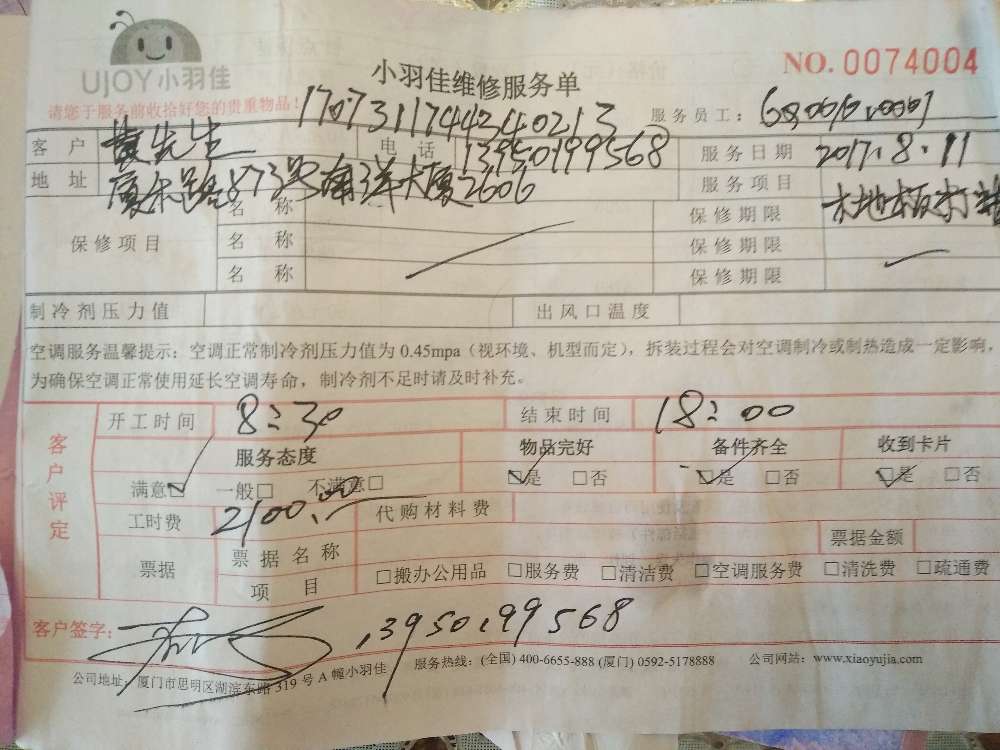 UJOY小羽佳
小羽佳维修服务单
NO. 0074004
请您于服务前收拾好您的贵重物品！
1707311744340213
服务员工：
客户 黄先生 电话 13950199568 服务日期 2017.8.11
地址 厦禾路873号南洋大厦2606 服务项目 木地板打蜡
保修项目
名称 保修期限
名称 保修期限
名称 保修期限
制冷剂压力值 出风口温度
空调服务温馨提示：空调正常制冷剂压力值为 0.45mpa（视环境、机型而定），拆装过程会对空调制冷或制热造成一定影响，
为确保空调正常使用延长空调寿命，制冷剂不足时请及时补充。
客户评定
开工时间 8:30 结束时间 18:00
服务态度 物品完好 备件齐全 收到卡片
满意☑ 一般□ 不满意□ ☑是 □否 ☑是 □否 ☑是 □否
工时费 2100.00 代购材料费
票据 票据名称 票据金额
项目 □搬办公用品 □服务费 □清洁费 □空调服务费 □清洗费 □疏通费
客户签字： 13950199568
公司地址：厦门市思明区湖滨东路 319 号 A 幢小羽佳 服务热线：(全国) 400-6655-888 (厦门) 0592-5178888 公司网站：www.xiaoyujia.com